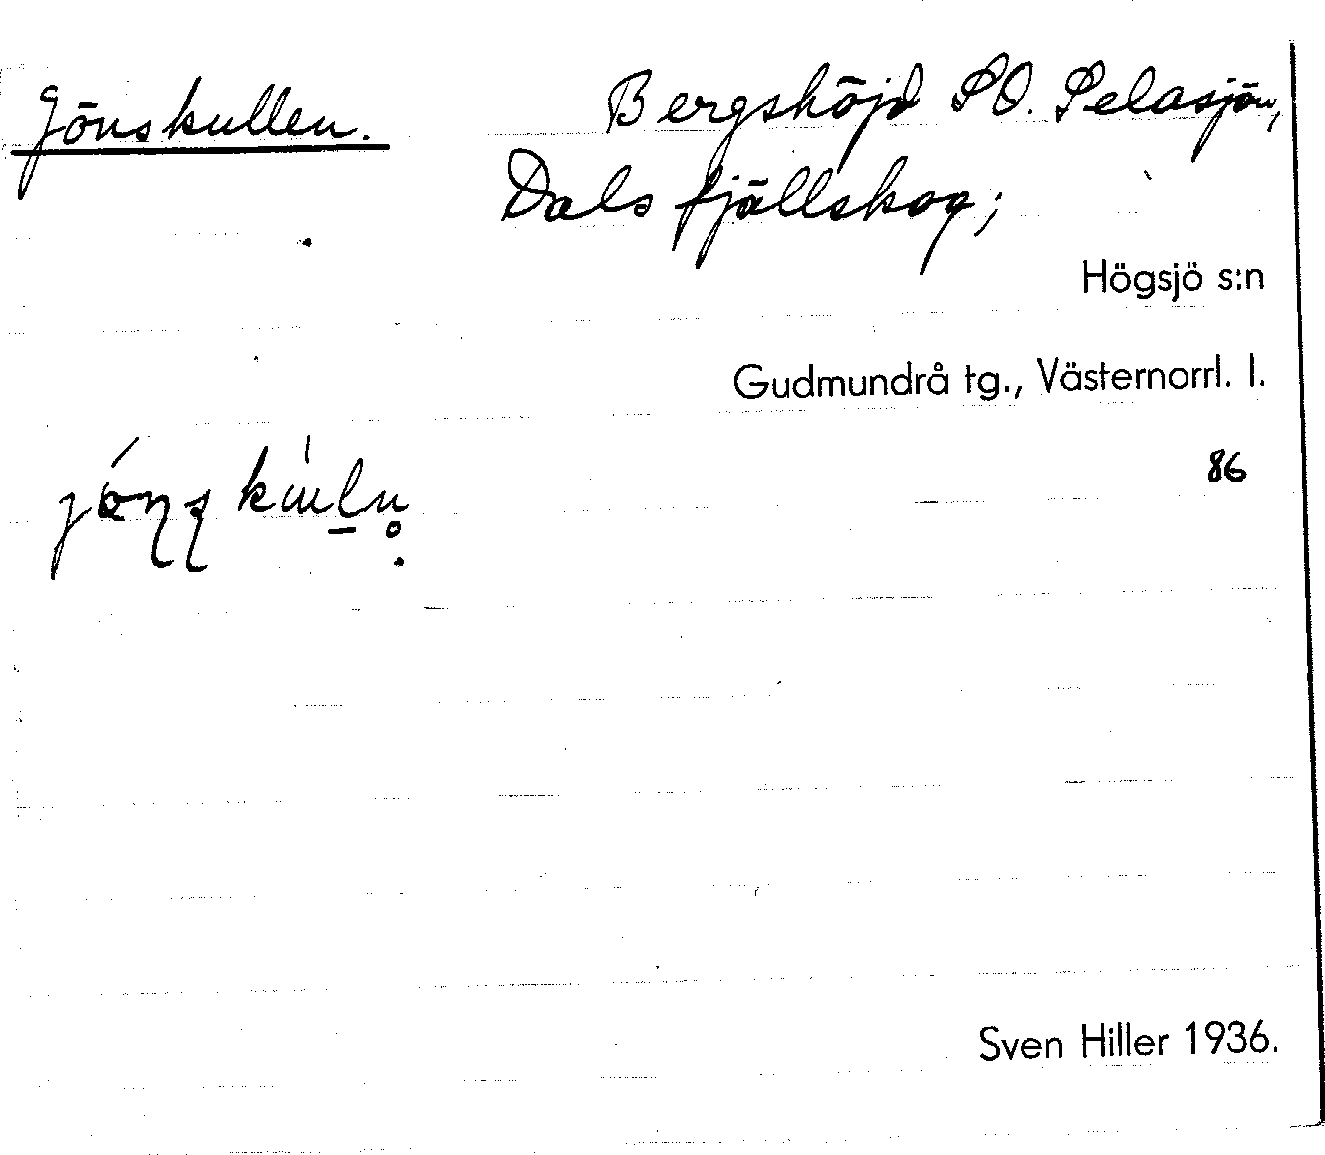 Jönskullen. Bergshöjd SO. Selasjön,
Dals fjällskog;
Högsjö s:n
Gudmundrå tg., Västernorrl. l.
86
Sven Hiller 1936.